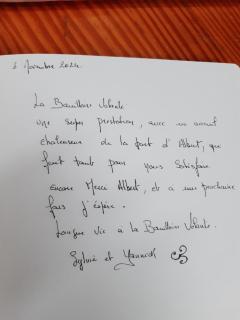 6 Novembre 2024.
La Bouillon Volante
une super prestation, avec un accueil
chaleureux de la part d'Albert, qui
fait tout pour vous satisfaire
encore Merci Albert, et à une prochaine
fois j'espère.
Longue vie à la Bouillon Volante.
Sylvie et Yannick